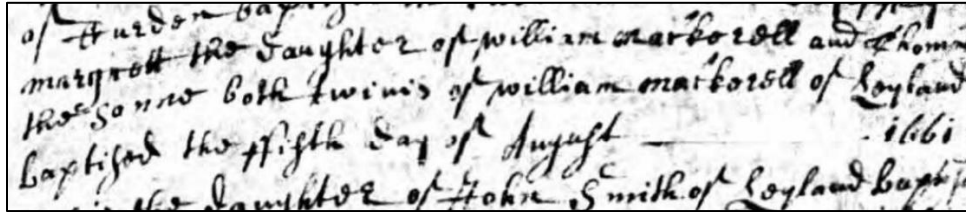 of
margrett the daughter of william mackorell and Thom
the sonne both twinis of william mackorell of Leyland
baptised the ffifth day of August 1661
the daughter of John Smith of Leyland bapt